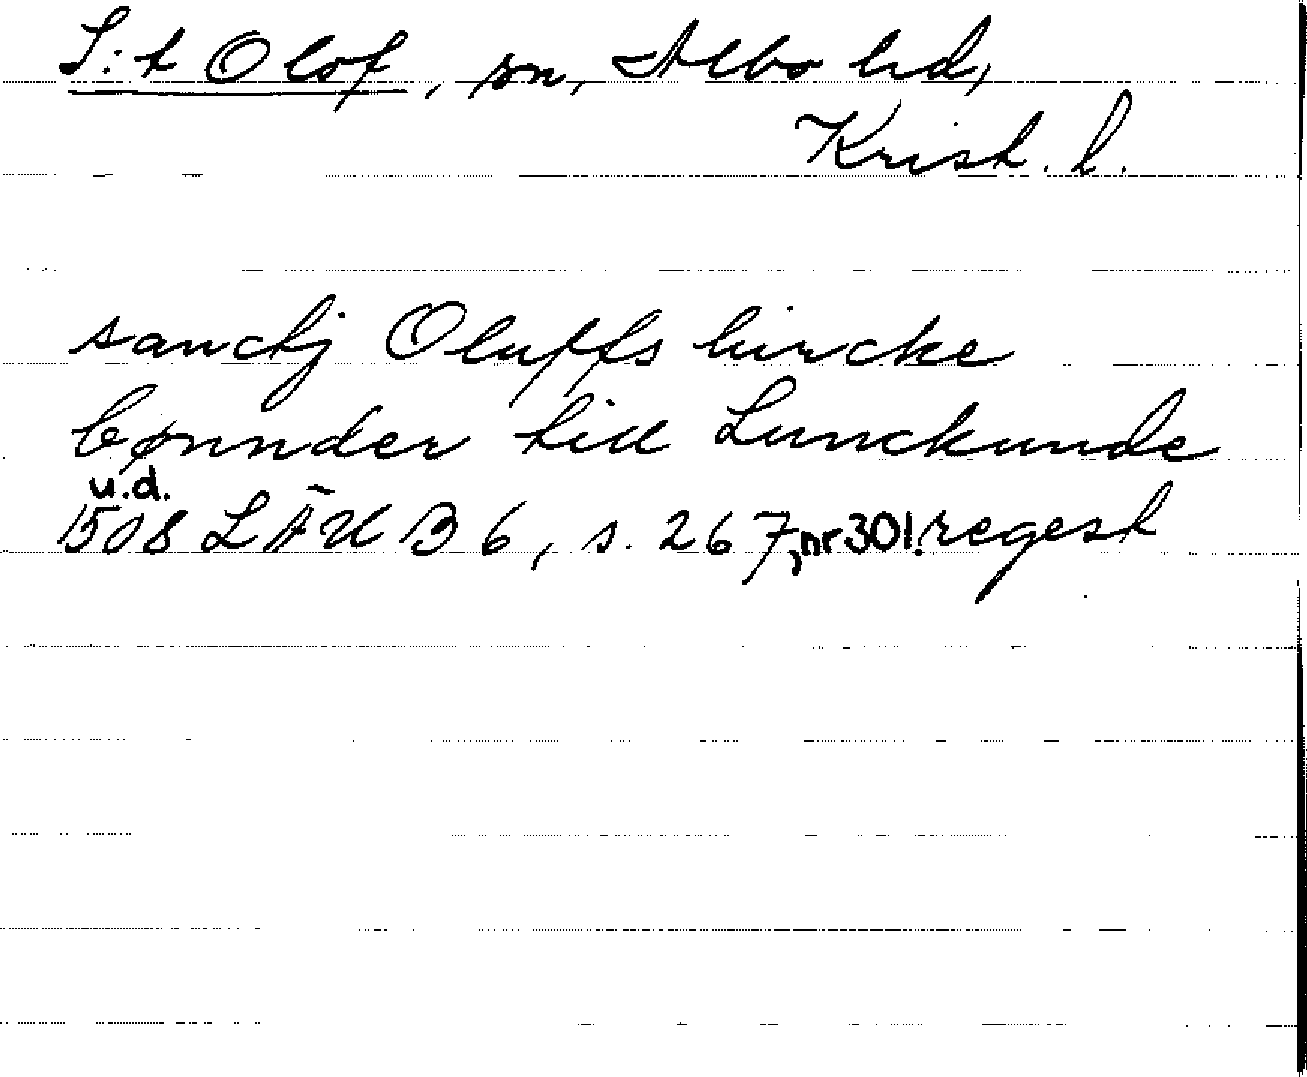 S:t Olof, sn, Albo hd,
Krist. l.
sanctj Oluffs kircke
bønnder till Lunckunde
u.d.
1508 LÄU B 6, s. 267, nr 301. regest